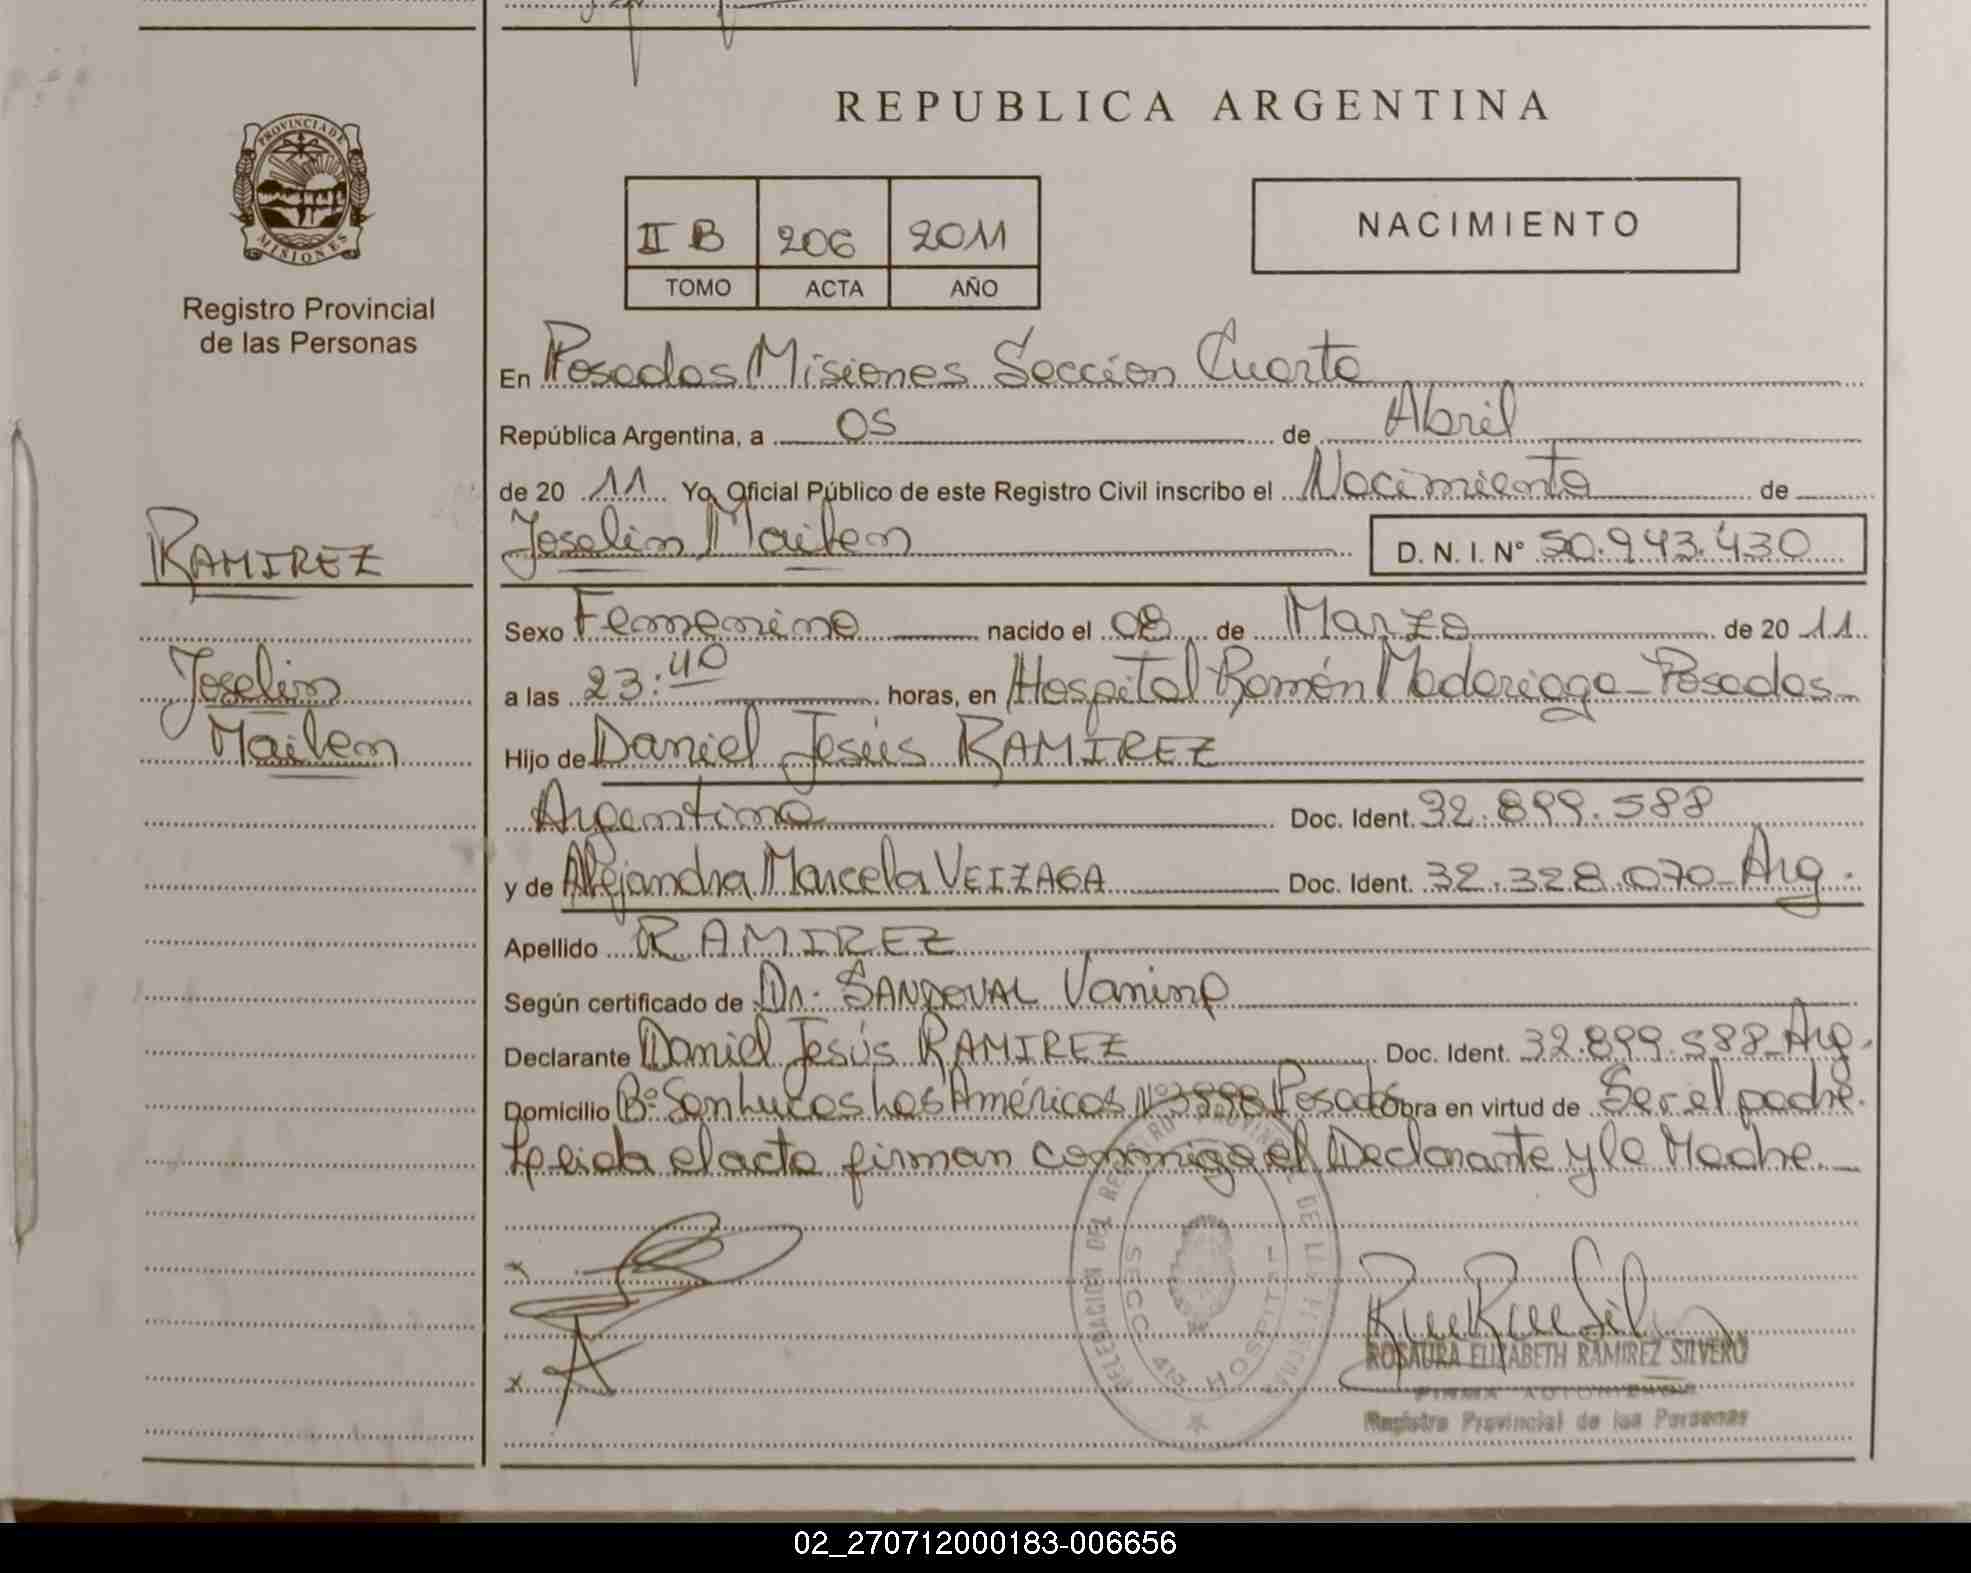 REPUBLICA ARGENTINA
PROVINCIA DE
MISIONES
Registro Provincial
de las Personas
II B 206 2011
TOMO ACTA AÑO
NACIMIENTO
En Posadas Misiones Sección Cuarta
República Argentina, a 05 de Abril
de 20 11 Yo, Oficial Público de este Registro Civil inscribo el Nacimiento de
Joselin Mailen D. N. I. N° 50.943.430
RAMIREZ
Sexo Femenino nacido el 08 de Marzo de 20 11
Joselin
a las 23:40 horas, en Hospital Ramón Madariaga - Posadas
Mailen
Hijo de Daniel Jesús RAMIREZ
Argentino Doc. Ident. 32.899.588
y de Alejandra Marcela VEIZAGA Doc. Ident. 32.328.070 - Arg.
Apellido RAMIREZ
Según certificado de Dr. SANDOVAL Vanina
Declarante Daniel Jesús RAMIREZ Doc. Ident. 32.899.588 - Arg.
Domicilio B° San Lucas Las Américas N° Posadas Obra en virtud de Ser el padre.
Leída el acta firman conmigo el Declarante y la Madre
x
x
DELEGACION DEL REGISTRO PROVINCIAL DE LAS PERSONAS
SECC. 4ta HOSPITAL
ROSAURA ELIZABETH RAMIREZ SILVERO
FIRMA AUTORIZADA
Registro Provincial de las Personas
02_270712000183-006656